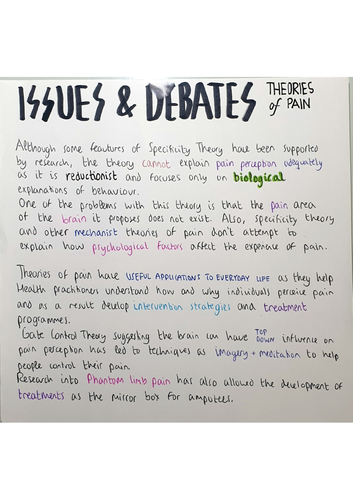 ISSUES & DEBATES THEORIES
of PAIN
Although some feautures of Specificity Theory have been supported
by research, the theory cannot explain pain perception adequately
as it is reductionist and focuses only on biological
explanations of behaviour.
One of the problems with this theory is that the pain area
of the brain it proposes does not exist. Also, specificity theory
and other mechanist theories of pain don't attempt to
explain how psychological factors affect the experience of pain.
Theories of pain have USEFUL APPLICATIONS TO EVERYDAY LIFE as they help
Health practitioners understand how and why individuals perceive pain
and as a result develop intervention strategies and treatment
programmes.
Gate Control Theory suggesting the brain can have TOP DOWN influence on
pain perception has led to techniques as imagery + meditation to help
people control their pain.
Research into Phantom limb pain has also allowed the development of
treatments as the mirror box for amputees.